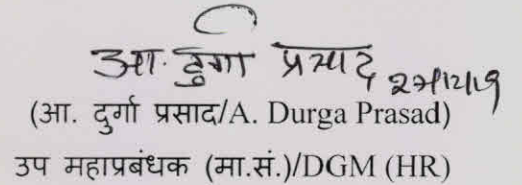 आ. दुर्गा प्रसाद
(आ. दुर्गा प्रसाद/A. Durga Prasad)
उप महाप्रबंधक (मा.सं.)/DGM (HR)